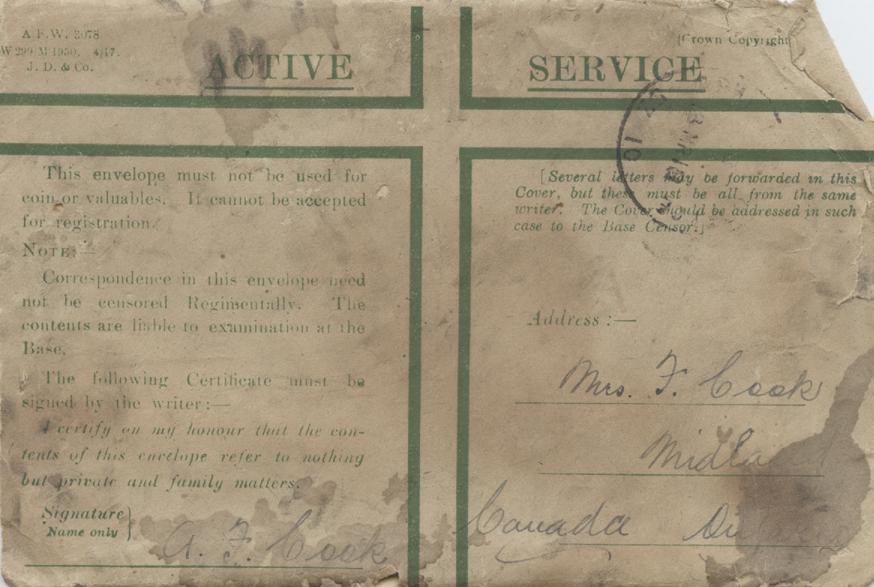 A.F.W. 3078
W 299/M1950. 4/17.
J. D. & Co.
ACTIVE
This envelope must not be used for
coin or valuables. It cannot be accepted
for registration.
NOTE:—
Correspondence in this envelope need
not be censored Regimentally. The
contents are liable to examination at the
Base.
The following Certificate must be
signed by the writer:—
I certify on my honour that the con-
tents of this envelope refer to nothing
but private and family matters.
Signature
Name only
A. F. Cook
(Crown Copyright
SERVICE
[Several letters may be forwarded in this
Cover, but these must be all from the same
writer. The Cover should be addressed in such
case to the Base Censor.]
Address:—
Mrs. F. Cook
Canada